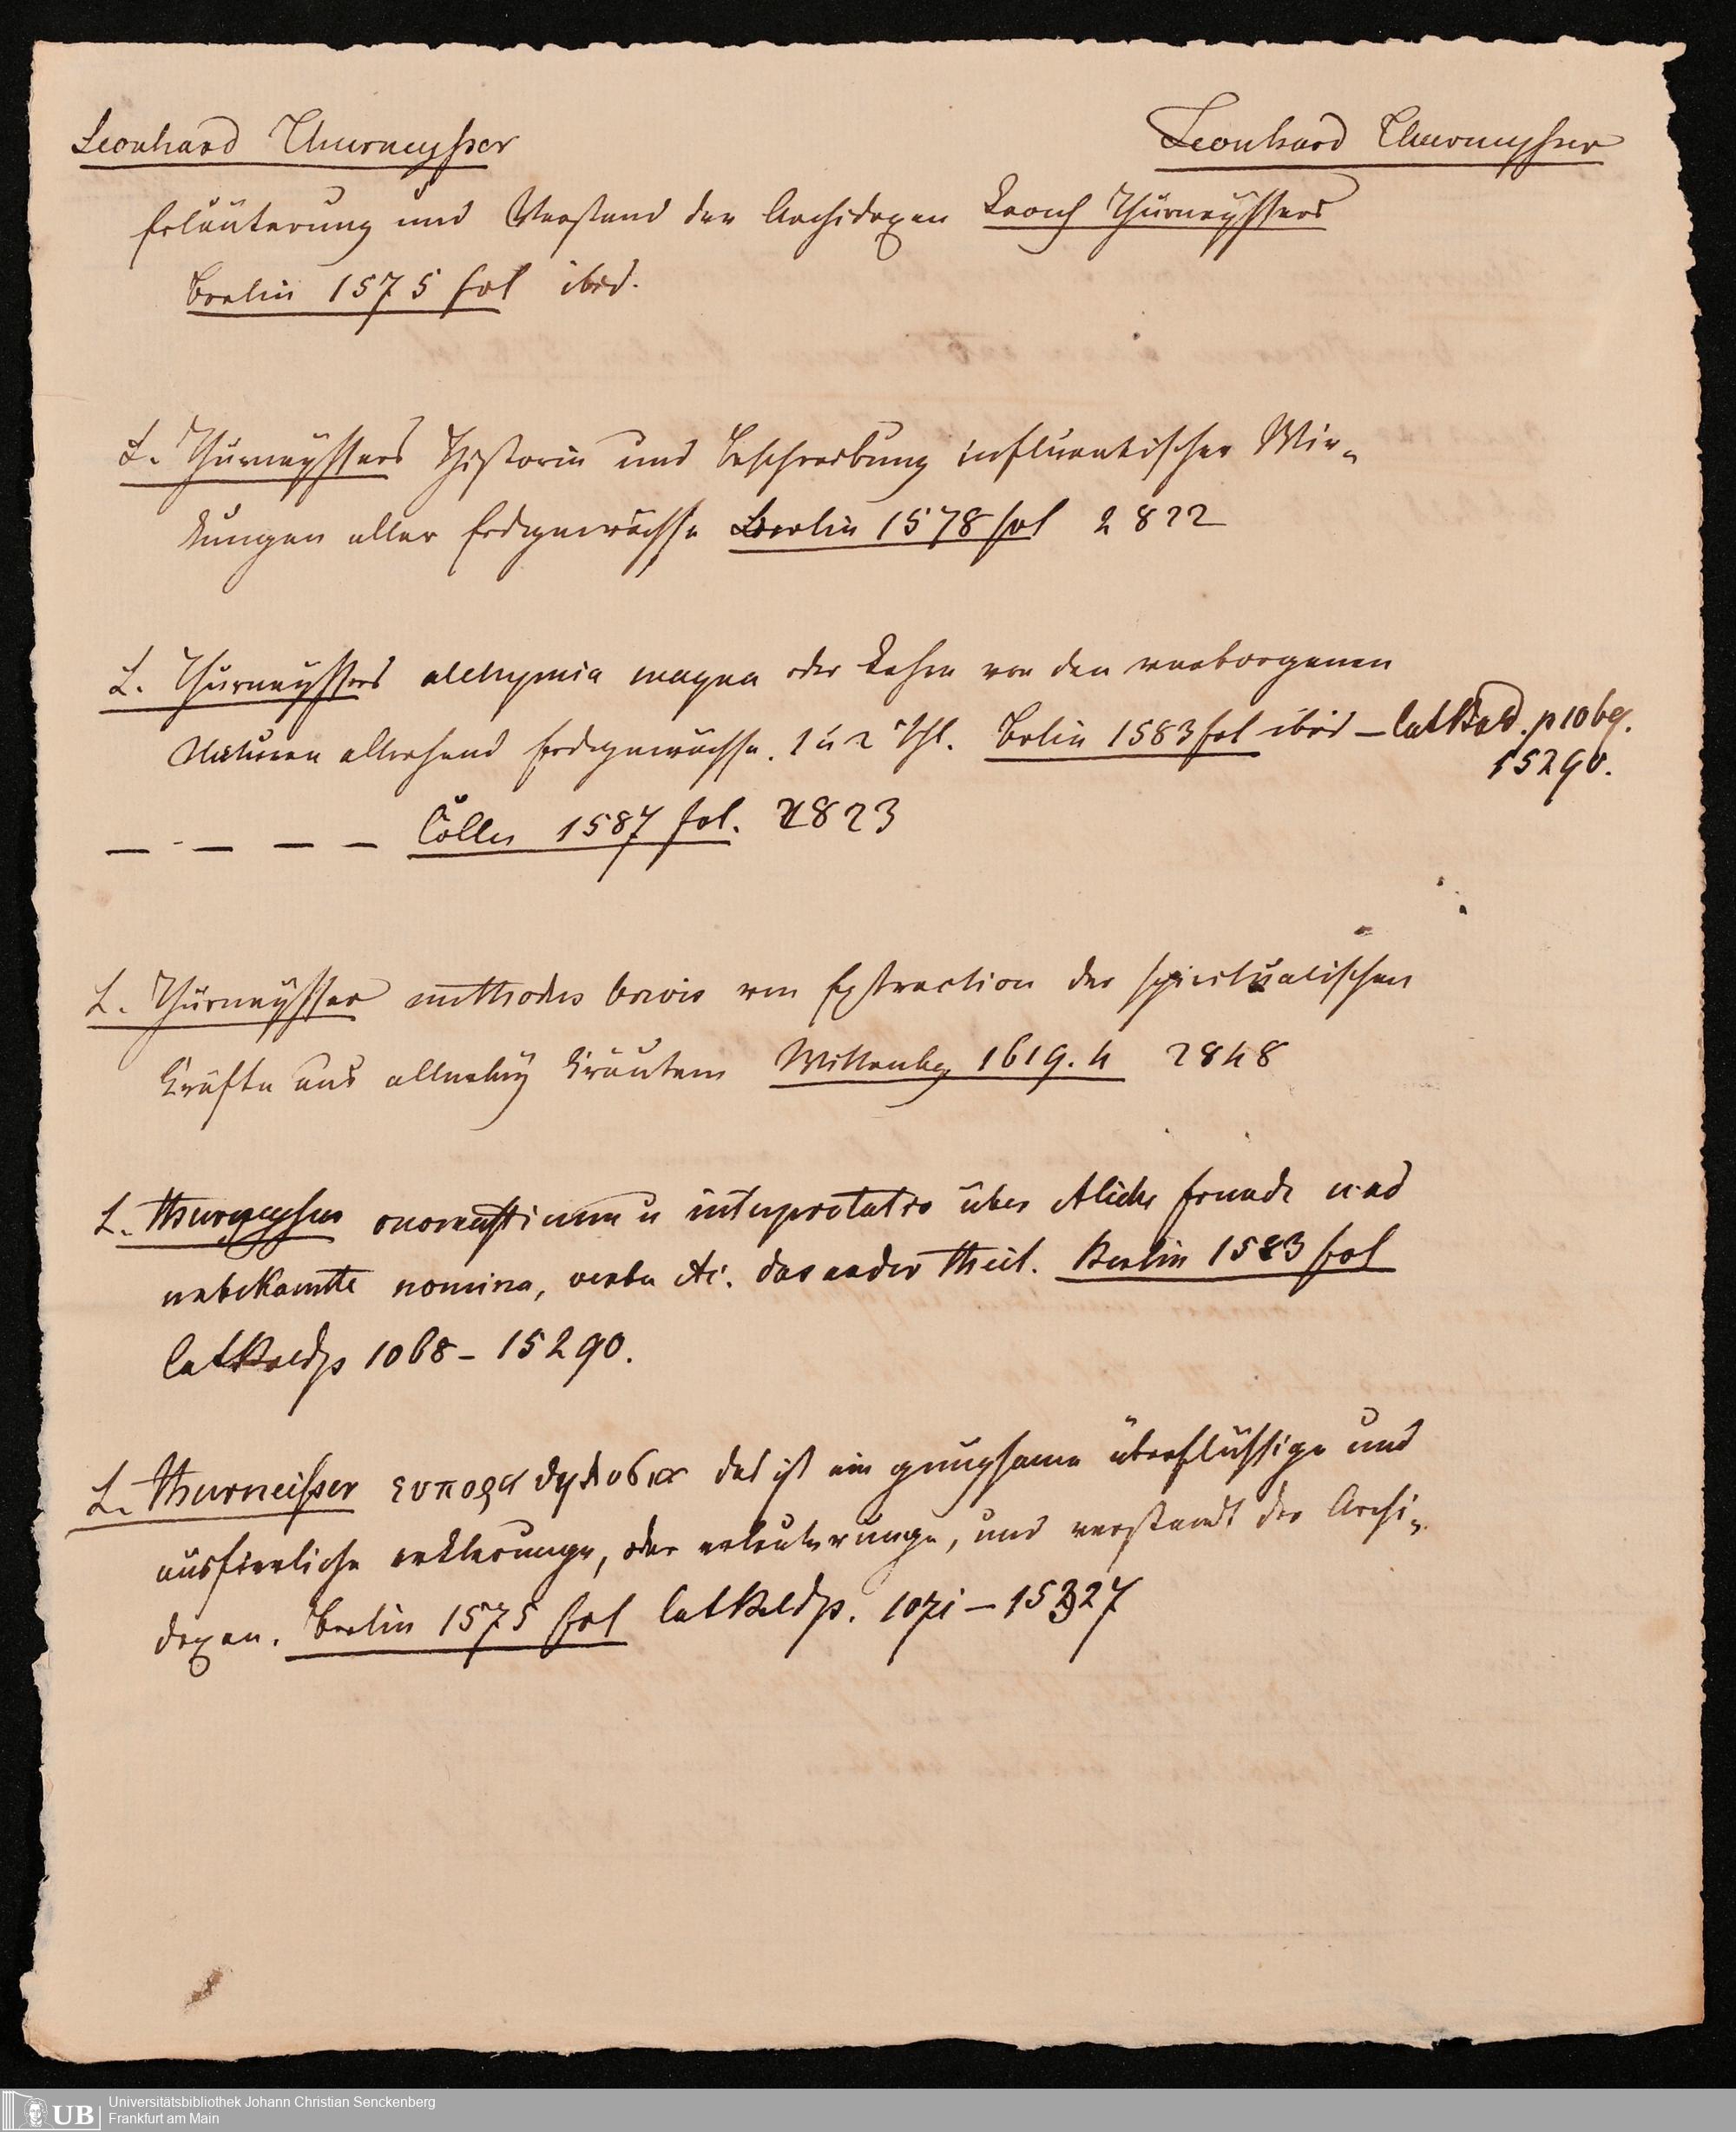 Leonhard Thurneysser
Leonhard Thurneysser
Erläuterung und Verstand der Archidoxen Leonh Thürneyssers
Berlin 1575 fol ibid.
L. Thürneyssers Historia und Beschreibung influentischer Wir-
kungen aller Erdgewächse Berlin 1578 fol 2822
L. Thürneyssers alchymia magna oder Lehre von den verborgenen
Naturen allerhand Erdgewächse. 1 u 2 Thl. Berlin 1583 fol ibid – p 1069.
15290.
— - — — — Cölln 1587 fol. 2823
L. Thürneysser methodus brevis von Extraction der spiritualischen
Kräfte aus allerley Kräutern Wittenbg 1619. 4 2848
L. Thurneysser onomasticum u interpretatio über etliche fremde und
unbekannte nomina, verba etc. das ander theil. Berlin 1583 fol
p 1068 – 15290.
L. Thurneisser ευπορα δηλοσις das ist ein gnugsame überflüssige und
ausfierliche erklerunge, oder erleuterunge, und verstandt der Archi-
doxen. Berlin 1575 fol p. 1071 – 15327
UB
Universitätsbibliothek Johann Christian Senckenberg
Frankfurt am Main